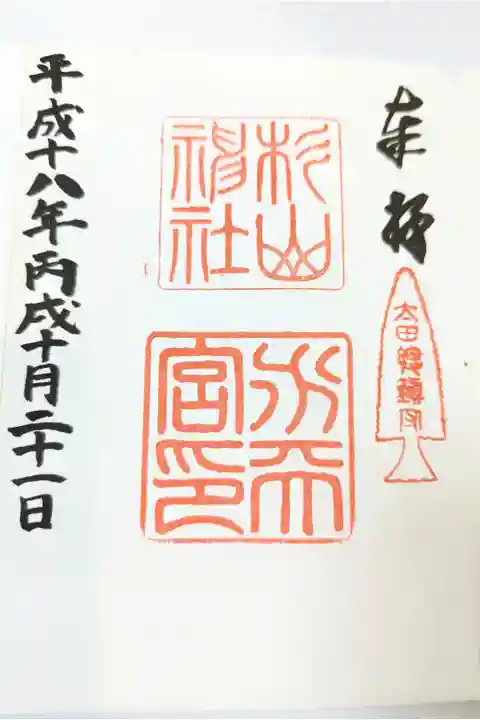 奉拝
太田總鎮守
杉山
神社
水天
宮印
平成十八年丙戌十月二十一日